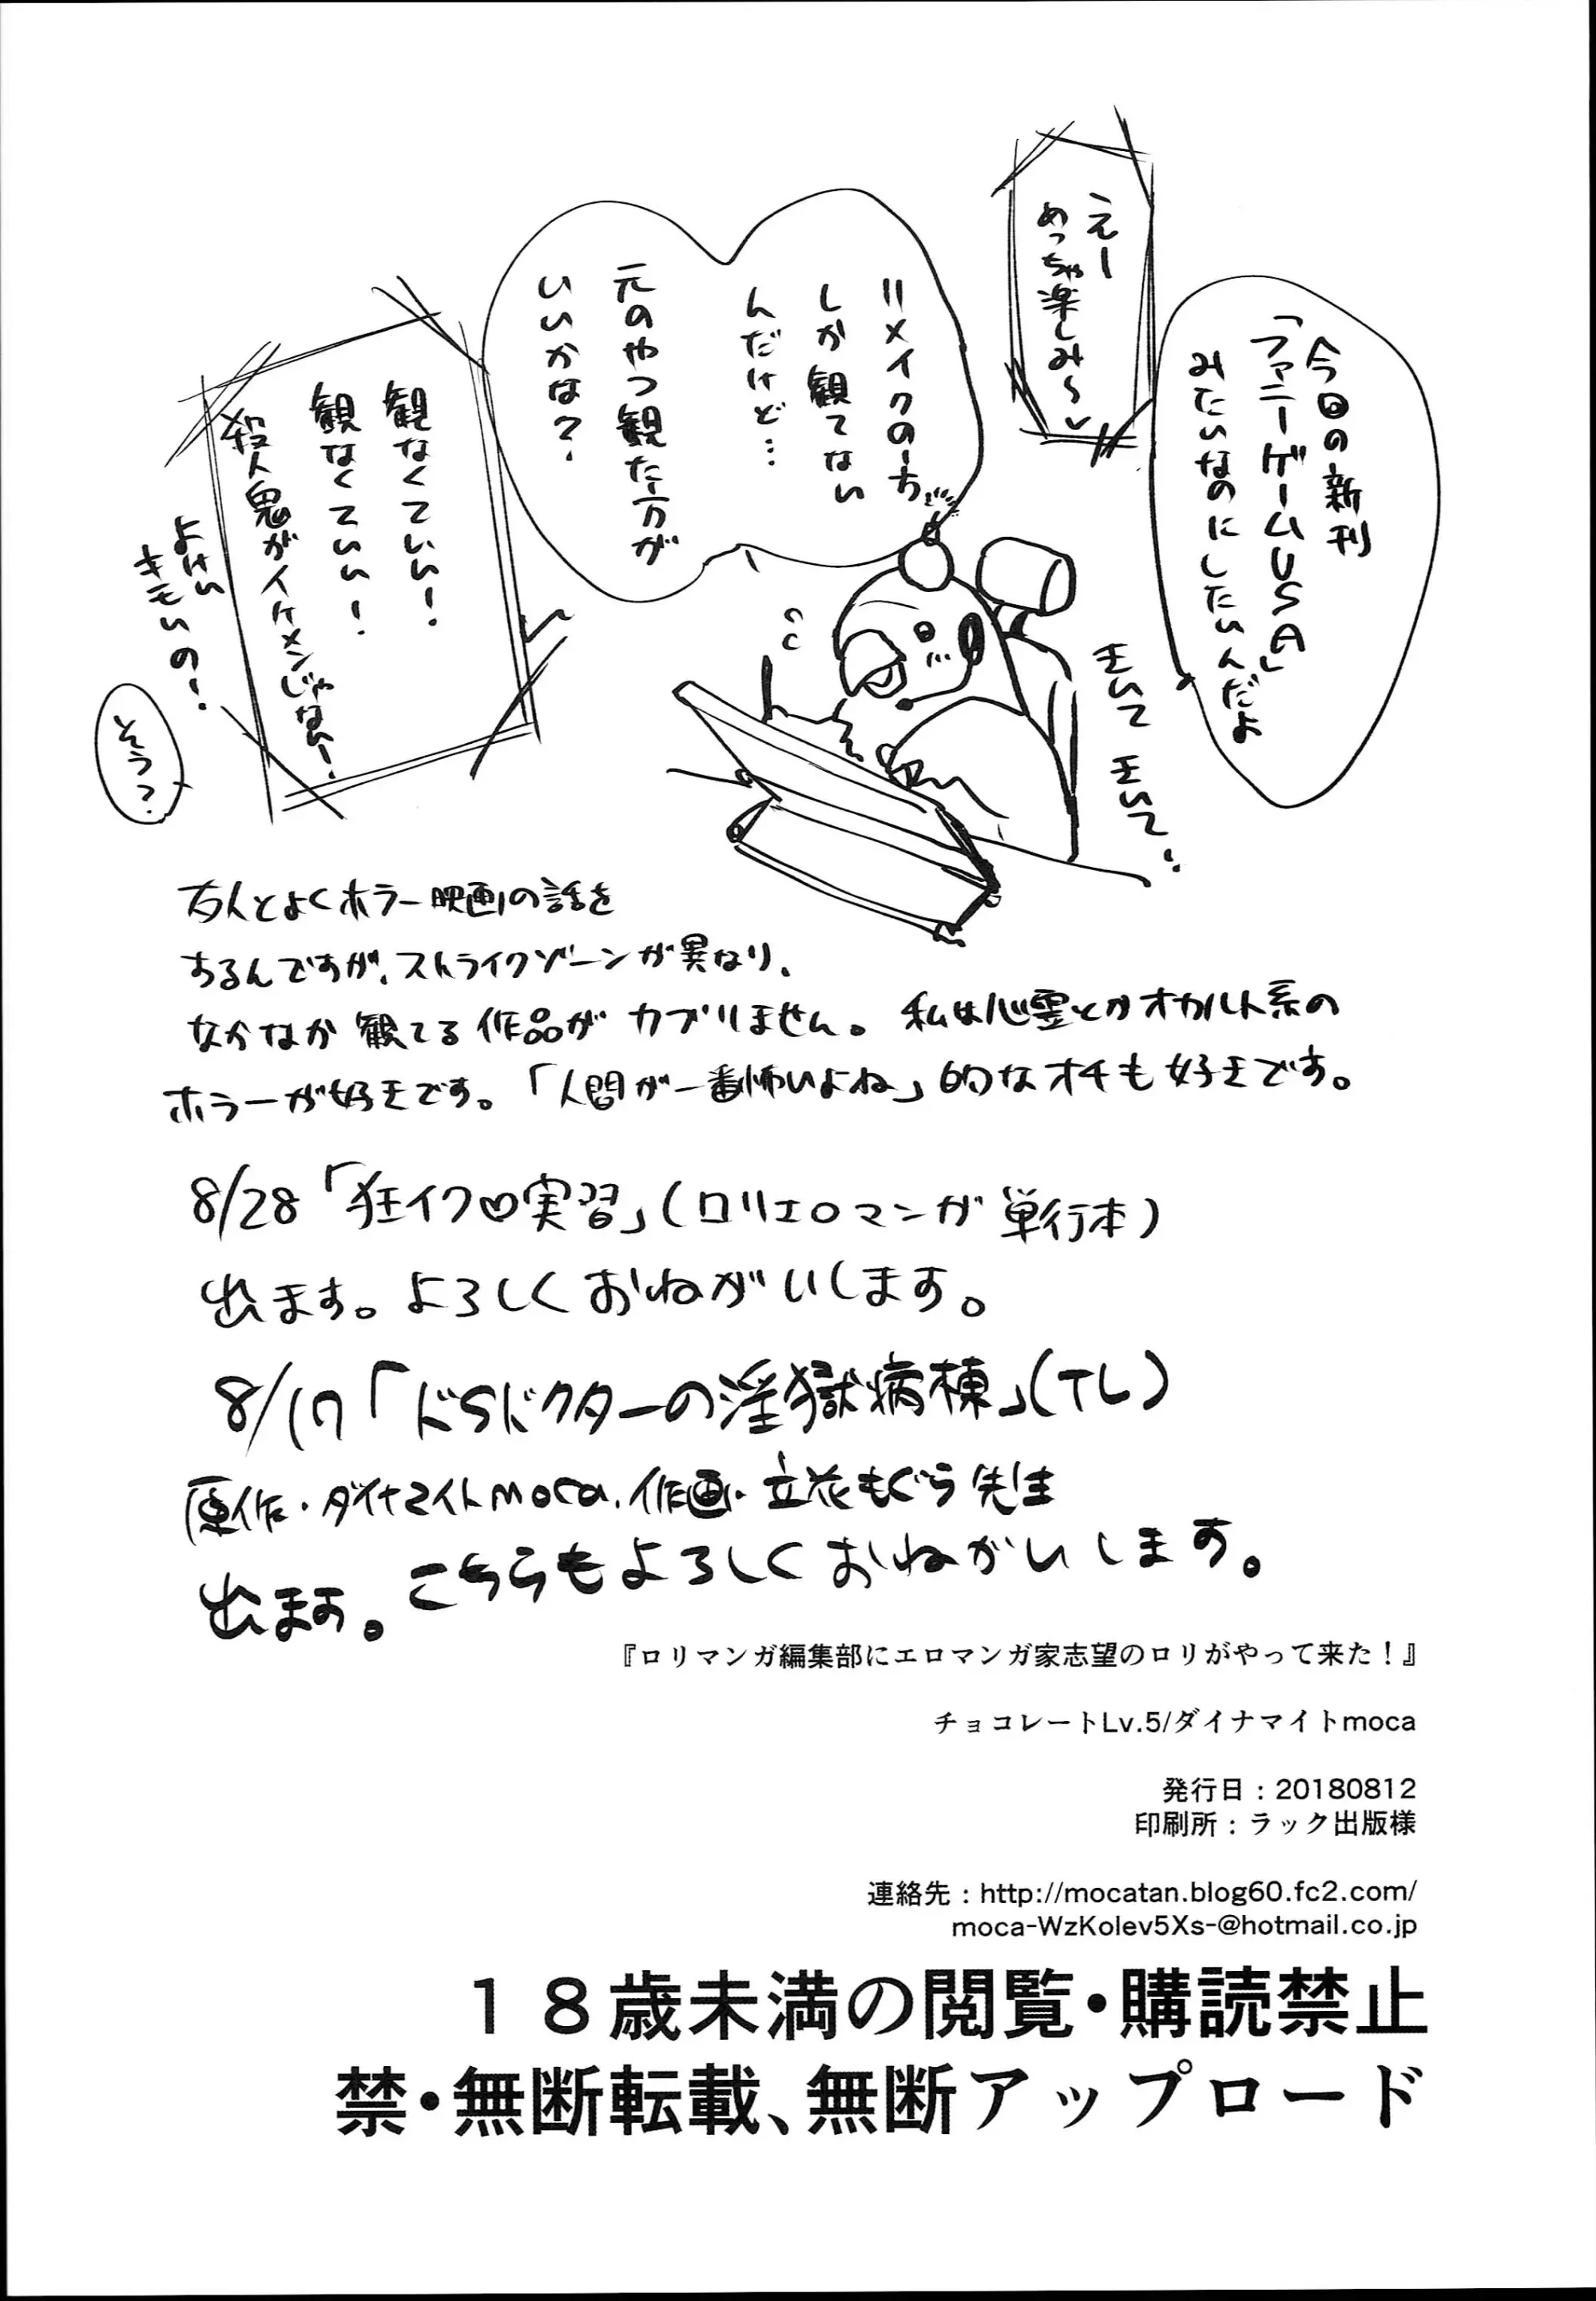 えー
めっちゃ楽しみ〜
今回の新刊
「ファニーゲームUSA」
みたいなのにしたいんだよ
リメイクの方
しか観てない
んだけど…
元のやつ観た方が
いいかな?
観なくていい!
観なくていい!
殺人鬼がイケメンじゃない!
よけい
キモいの!
そう?
友人とよくホラー映画の話を
するんですが、ストライクゾーンが異なり、
なかなか観てる作品がカブりません。私は心霊とかオカルト系の
ホラーが好きです。「人間が一番怖いよね」的なオチも好きです。
8/28「狂イク♡実習」(ロリエロマンガ単行本)
出ます。よろしくおねがいします。
8/17「ドSドクターの淫獄病棟」(TL)
原作・ダイナマイトmoca、作画・立花もぐら先生
出ます。こちらもよろしくおねがいします。
『ロリマンガ編集部にエロマンガ家志望のロリがやって来た!』
チョコレートLv.5/ダイナマイトmoca
発行日:20180812
印刷所:ラック出版様
連絡先:http://mocatan.blog60.fc2.com/
moca-WzKolev5Xs-@hotmail.co.jp
18歳未満の閲覧・購読禁止
禁・無断転載、無断アップロード